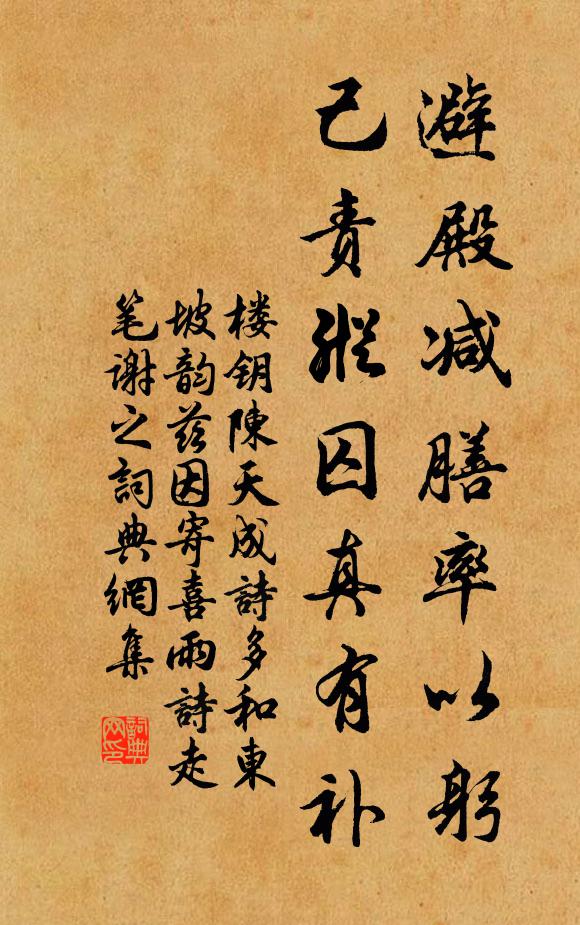 避殿减膳率以躬
己责縱囚真有补
楼钥陳天成詩多和東
坡韵兹因寄喜雨詩走
笔谢之詞典網集
詞典网印